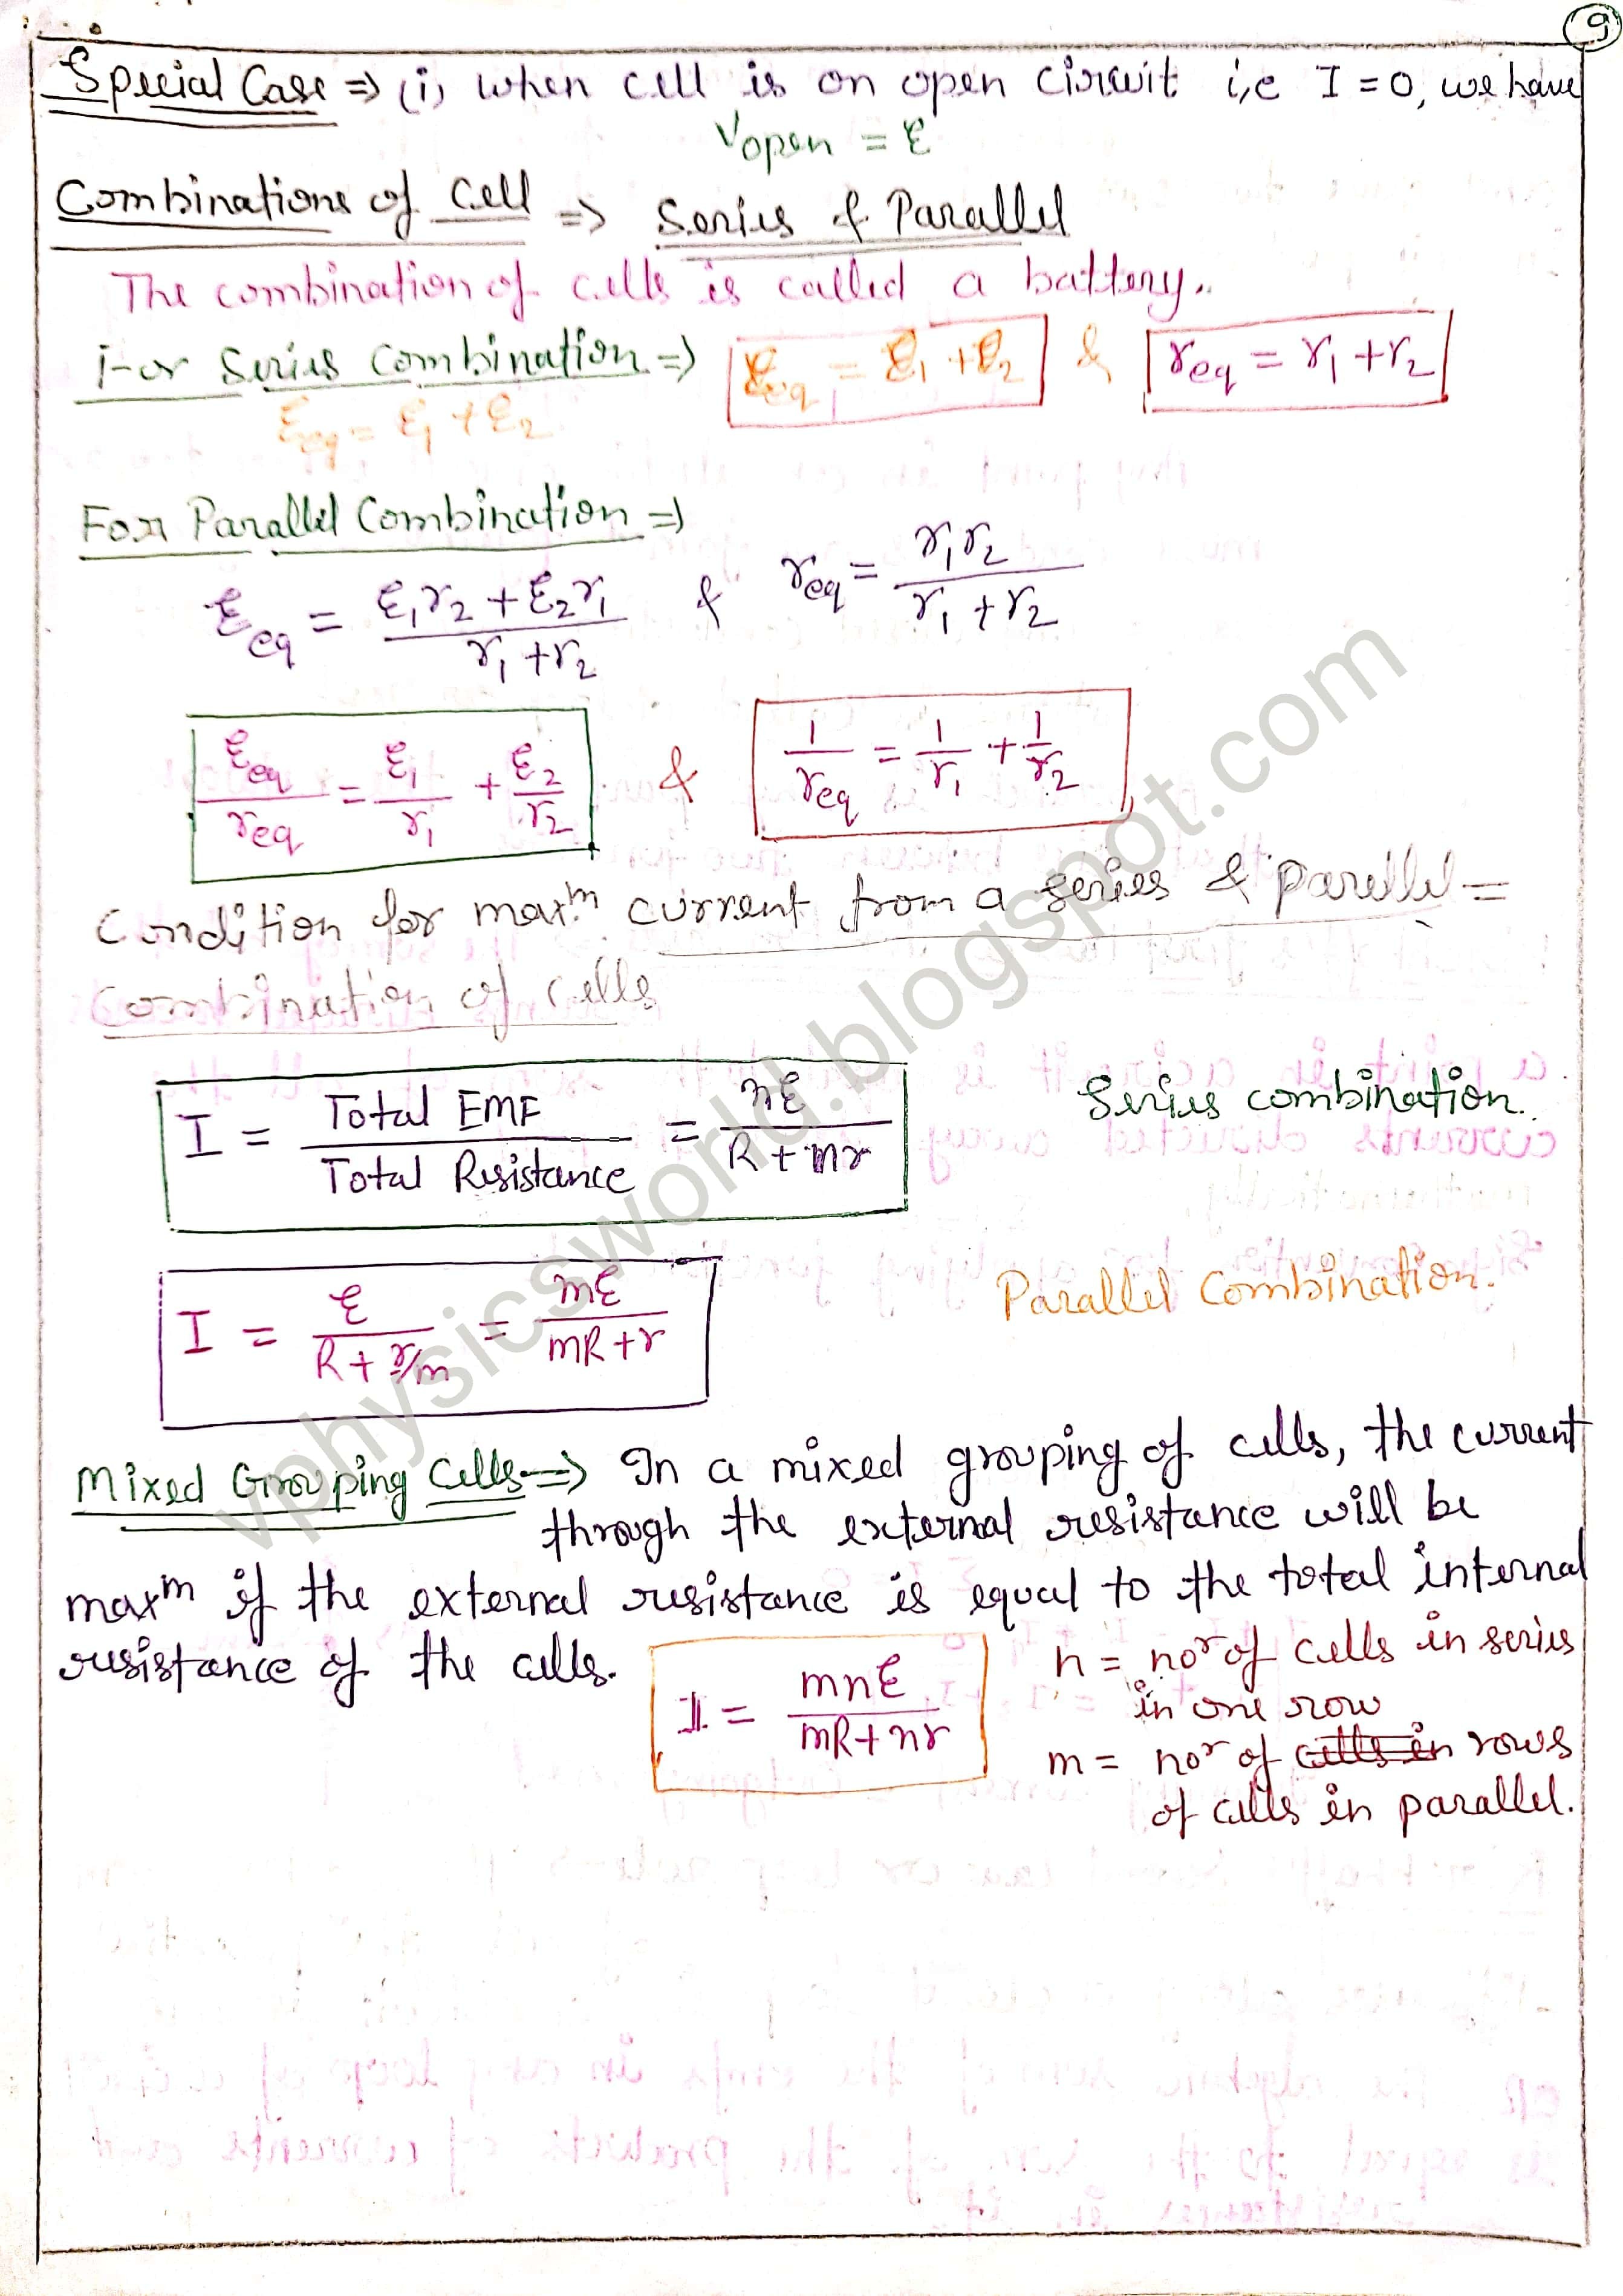 9
Special Case ⇒ (i) when cell is on open circuit i,e I = 0, we have
Vopen = ε
Combinations of Cell ⇒ Series & Parallel
The combination of cells is called a battery.
For Series Combination ⇒ εeq = ε1 + ε2 & req = r1 + r2
εeq = ε1 + ε2
For Parallel Combination ⇒
εeq = (ε1r2 + ε2r1)/(r1 + r2) & req = r1r2/(r1 + r2)
εeq/req = ε1/r1 + ε2/r2 & 1/req = 1/r1 + 1/r2
Condition for maxm current from a series & parellel =
Combination of cells
I = Total EMF/Total Resistance = nε/(R + nr) Series combination.
I = ε/(R + r/m) = mε/(mR + r) Parallel Combination.
Mixed Grouping Cells ⇒ In a mixed grouping of cells, the current
through the external resistance will be
maxm if the external resistance is equal to the total internal
resistance of the cells. I = mnε/(mR + nr) n = nor of cells in series
in one row
m = nor of rows
of cells in parallel.
vphysicsworld.blogspot.com